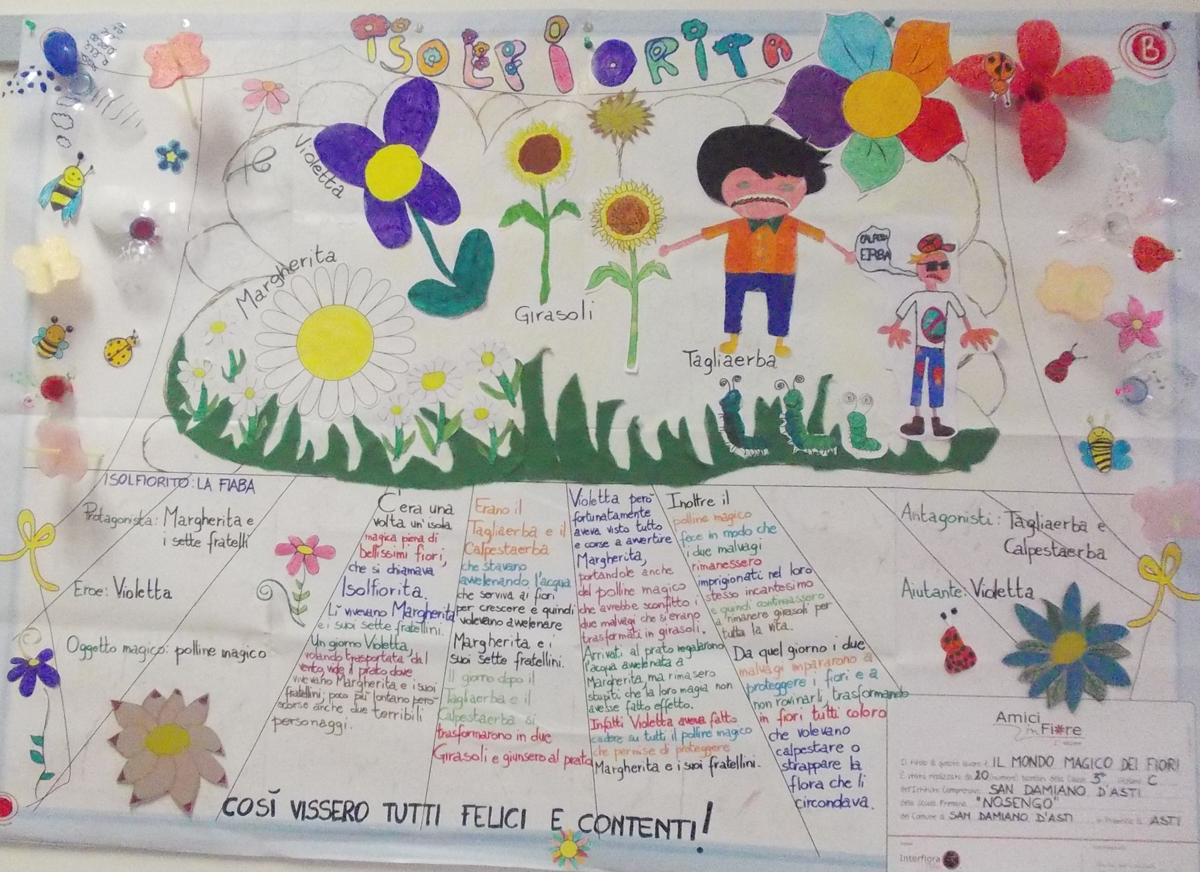 ISOLFIORITA
B
Violetta
Margherita
Girasoli
Tagliaerba
CALPESTA
ERBA
ISOLFIORITO: LA FIABA
Protagonista: Margherita e
i sette fratelli
Eroe: Violetta
Oggetto magico: polline magico
C'era una
volta un'isola
magica piena di
bellissimi fiori,
che si chiamava
Isolfiorita.
Lì vivevano Margherita
e i suoi sette fratellini.
Un giorno Violetta,
volando trasportata dal
vento, vide il prato dove
vivevano Margherita e i suoi
fratellini, poco più lontano però
scorse anche due terribili
personaggi.
Erano il
Tagliaerba e il
Calpestaerba
che stavano
avvelenando l'acqua
che serviva ai fiori
per crescere e quindi
volevano avvelenare
Margherita e i
suoi sette fratellini.
Il giorno dopo il
Tagliaerba e il
Calpestaerba si
trasformarono in due
Girasoli e giunsero al prato
Violetta però
fortunatamente
aveva visto tutto
e corse a avvertire
Margherita,
portandole anche
del polline magico
che avrebbe sconfitto i
due malvagi che si erano
trasformati in girasoli.
Arrivati al prato regalarono
l'acqua avvelenata a
Margherita ma rimasero
stupiti che la loro magia non
avesse fatto effetto.
Infatti Violetta aveva fatto
cadere su tutti il polline magico
che permise di proteggere
Margherita e i suoi fratellini.
Inoltre il
polline magico
fece in modo che
i due malvagi
rimanessero
imprigionati nel loro
stesso incantesimo
e quindi continuassero
a rimanere girasoli per
tutta la vita.
Da quel giorno i due
malvagi impararono a
proteggere i fiori e a
non rovinarli, trasformando
in fiori tutti coloro
che volevano
calpestare o
strappare la
flora che li
circondava.
Antagonisti: Tagliaerba e
Calpestaerba
Aiutante: Violetta
COSÌ VISSERO TUTTI FELICI E CONTENTI!
Amici
in Fiore
Il titolo di questo lavoro è IL MONDO MAGICO DEI FIORI
È stato realizzato da 20 (numero) bambini della Classe 5° Sezione C
dell'Istituto Comprensivo SAN DAMIANO D'ASTI
della Scuola Primaria "NOSENGO"
del Comune di SAN DAMIANO D'ASTI in Provincia di ASTI
Interflora